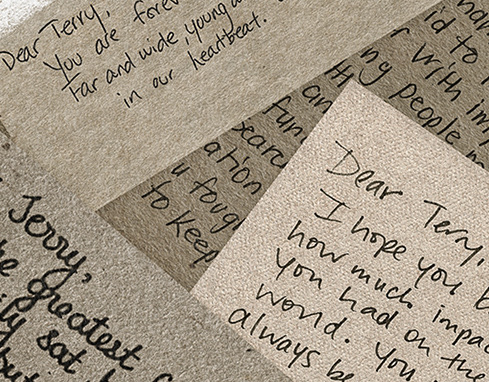 Dear Terry,
You are forev
far and wide, young a
in our heartbeat.
id to
r with imp
ng people
th
an
fun
searc
ation
u foug
to keep
Dear Terry,
I hope you
how much impac
you had on the
world. You
always be
Terry,
e greatest
ily sat
but